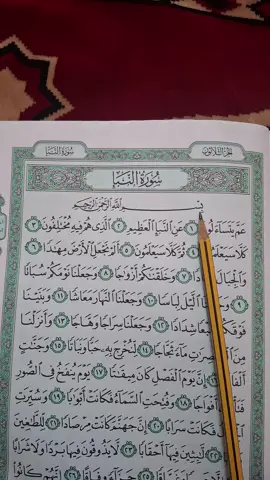 الجُزْءُ الثَّلَاثُونَ
سُورَةُ النَّبَإِ
سُورَةُ النَّبَإِ
بِسْمِ اللَّهِ الرَّحْمَٰنِ الرَّحِيمِ
عَمَّ يَتَسَآءَلُونَ ١ عَنِ ٱلنَّبَإِ ٱلْعَظِيمِ ٢ ٱلَّذِى هُمْ فِيهِ مُخْتَلِفُونَ ٣
كَلَّا سَيَعْلَمُونَ ثُمَّ كَلَّا سَيَعْلَمُونَ ٥ أَلَمْ نَجْعَلِ ٱلْأَرْضَ مِهَٰدًا ٦
وَٱلْجِبَالَ ٧ وَخَلَقْنَٰكُمْ أَزْوَٰجًا ٨ وَجَعَلْنَا نَوْمَكُمْ سُبَاتًا
٩ ٱلَّيْلَ لِبَاسًا ١٠ وَجَعَلْنَا ٱلنَّهَارَ مَعَاشًا ١١ وَبَنَيْنَا
فَوْقَكُمْ شِدَادًا ١٢ وَجَعَلْنَا سِرَاجًا وَهَّاجًا ١٣ وَأَنزَلْنَا
مِنَ ٱلْمُعْصِرَٰتِ مَآءً ثَجَّاجًا ١٤ لِّنُخْرِجَ بِهِۦ حَبًّا وَنَبَاتًا ١٥ وَجَنَّٰتٍ
أَلْفَافًا ١٦ إِنَّ يَوْمَ ٱلْفَصْلِ كَانَ مِيقَٰتًا ١٧ يَوْمَ يُنفَخُ فِى ٱلصُّورِ
فَتَأْتُونَ أَفْوَاجًا ١٨ وَفُتِحَتِ ٱلسَّمَآءُ فَكَانَتْ أَبْوَٰبًا ١٩ وَسُيِّرَتِ
ٱلْجِبَالُ فَكَانَتْ سَرَابًا ٢٠ إِنَّ جَهَنَّمَ كَانَتْ مِرْصَادًا ٢١ لِّلطَّٰغِينَ
لَّٰبِثِينَ فِيهَآ أَحْقَابًا ٢٣ لَّا يَذُوقُونَ فِيهَا بَرْدًا وَلَا شَرَابًا
جَزَآءً وِفَاقًا ٢٦ إِنَّهُمْ كَانُوا۟